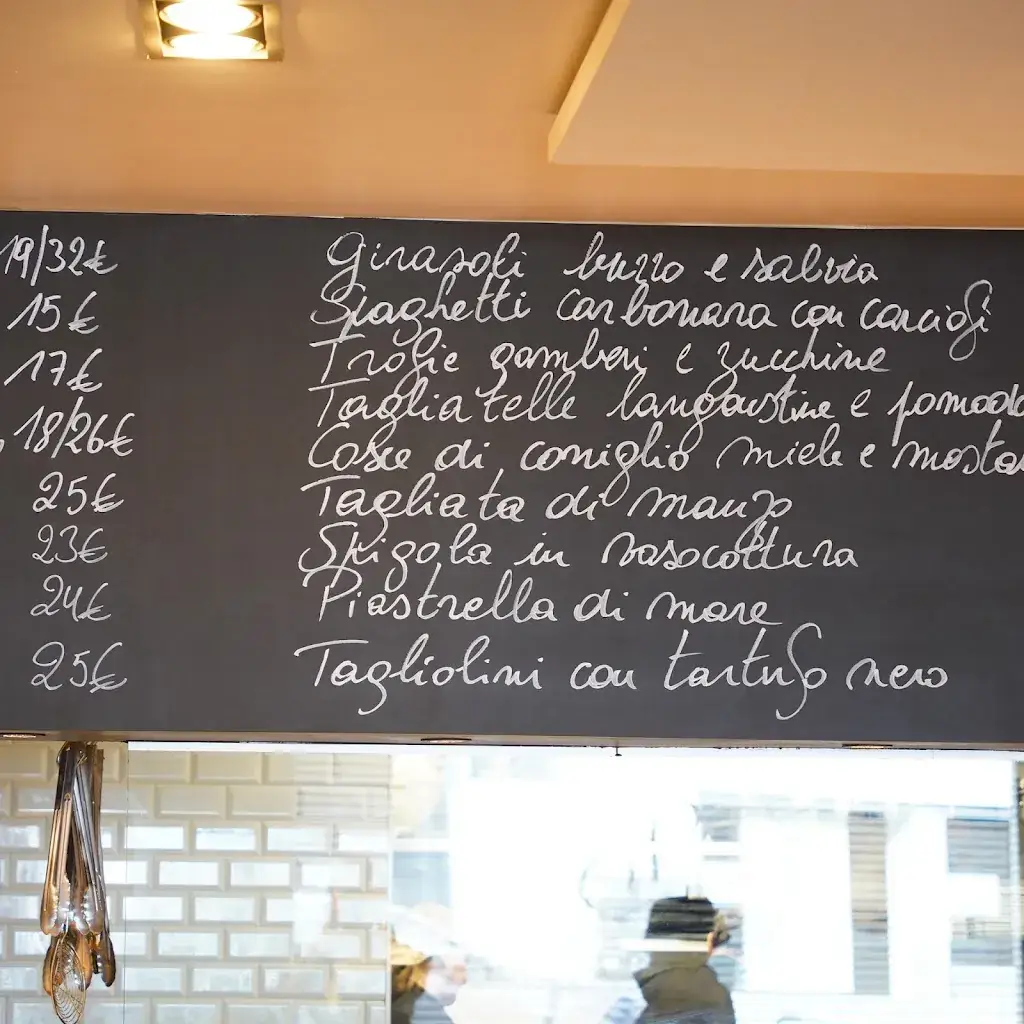 19/32€ Girasoli burro e salvia
15€ Spaghetti carbonara con carciofi
17€ Trofie gamberi e zucchine
18/26€ Tagliatelle langoustine e pomodo
25€ Cosce di coniglio miele e mosta
23€ Tagliata di manzo
24€ Spigola in vasocottura
25€ Piastrella di mare
Tagliolini con tartufo nero